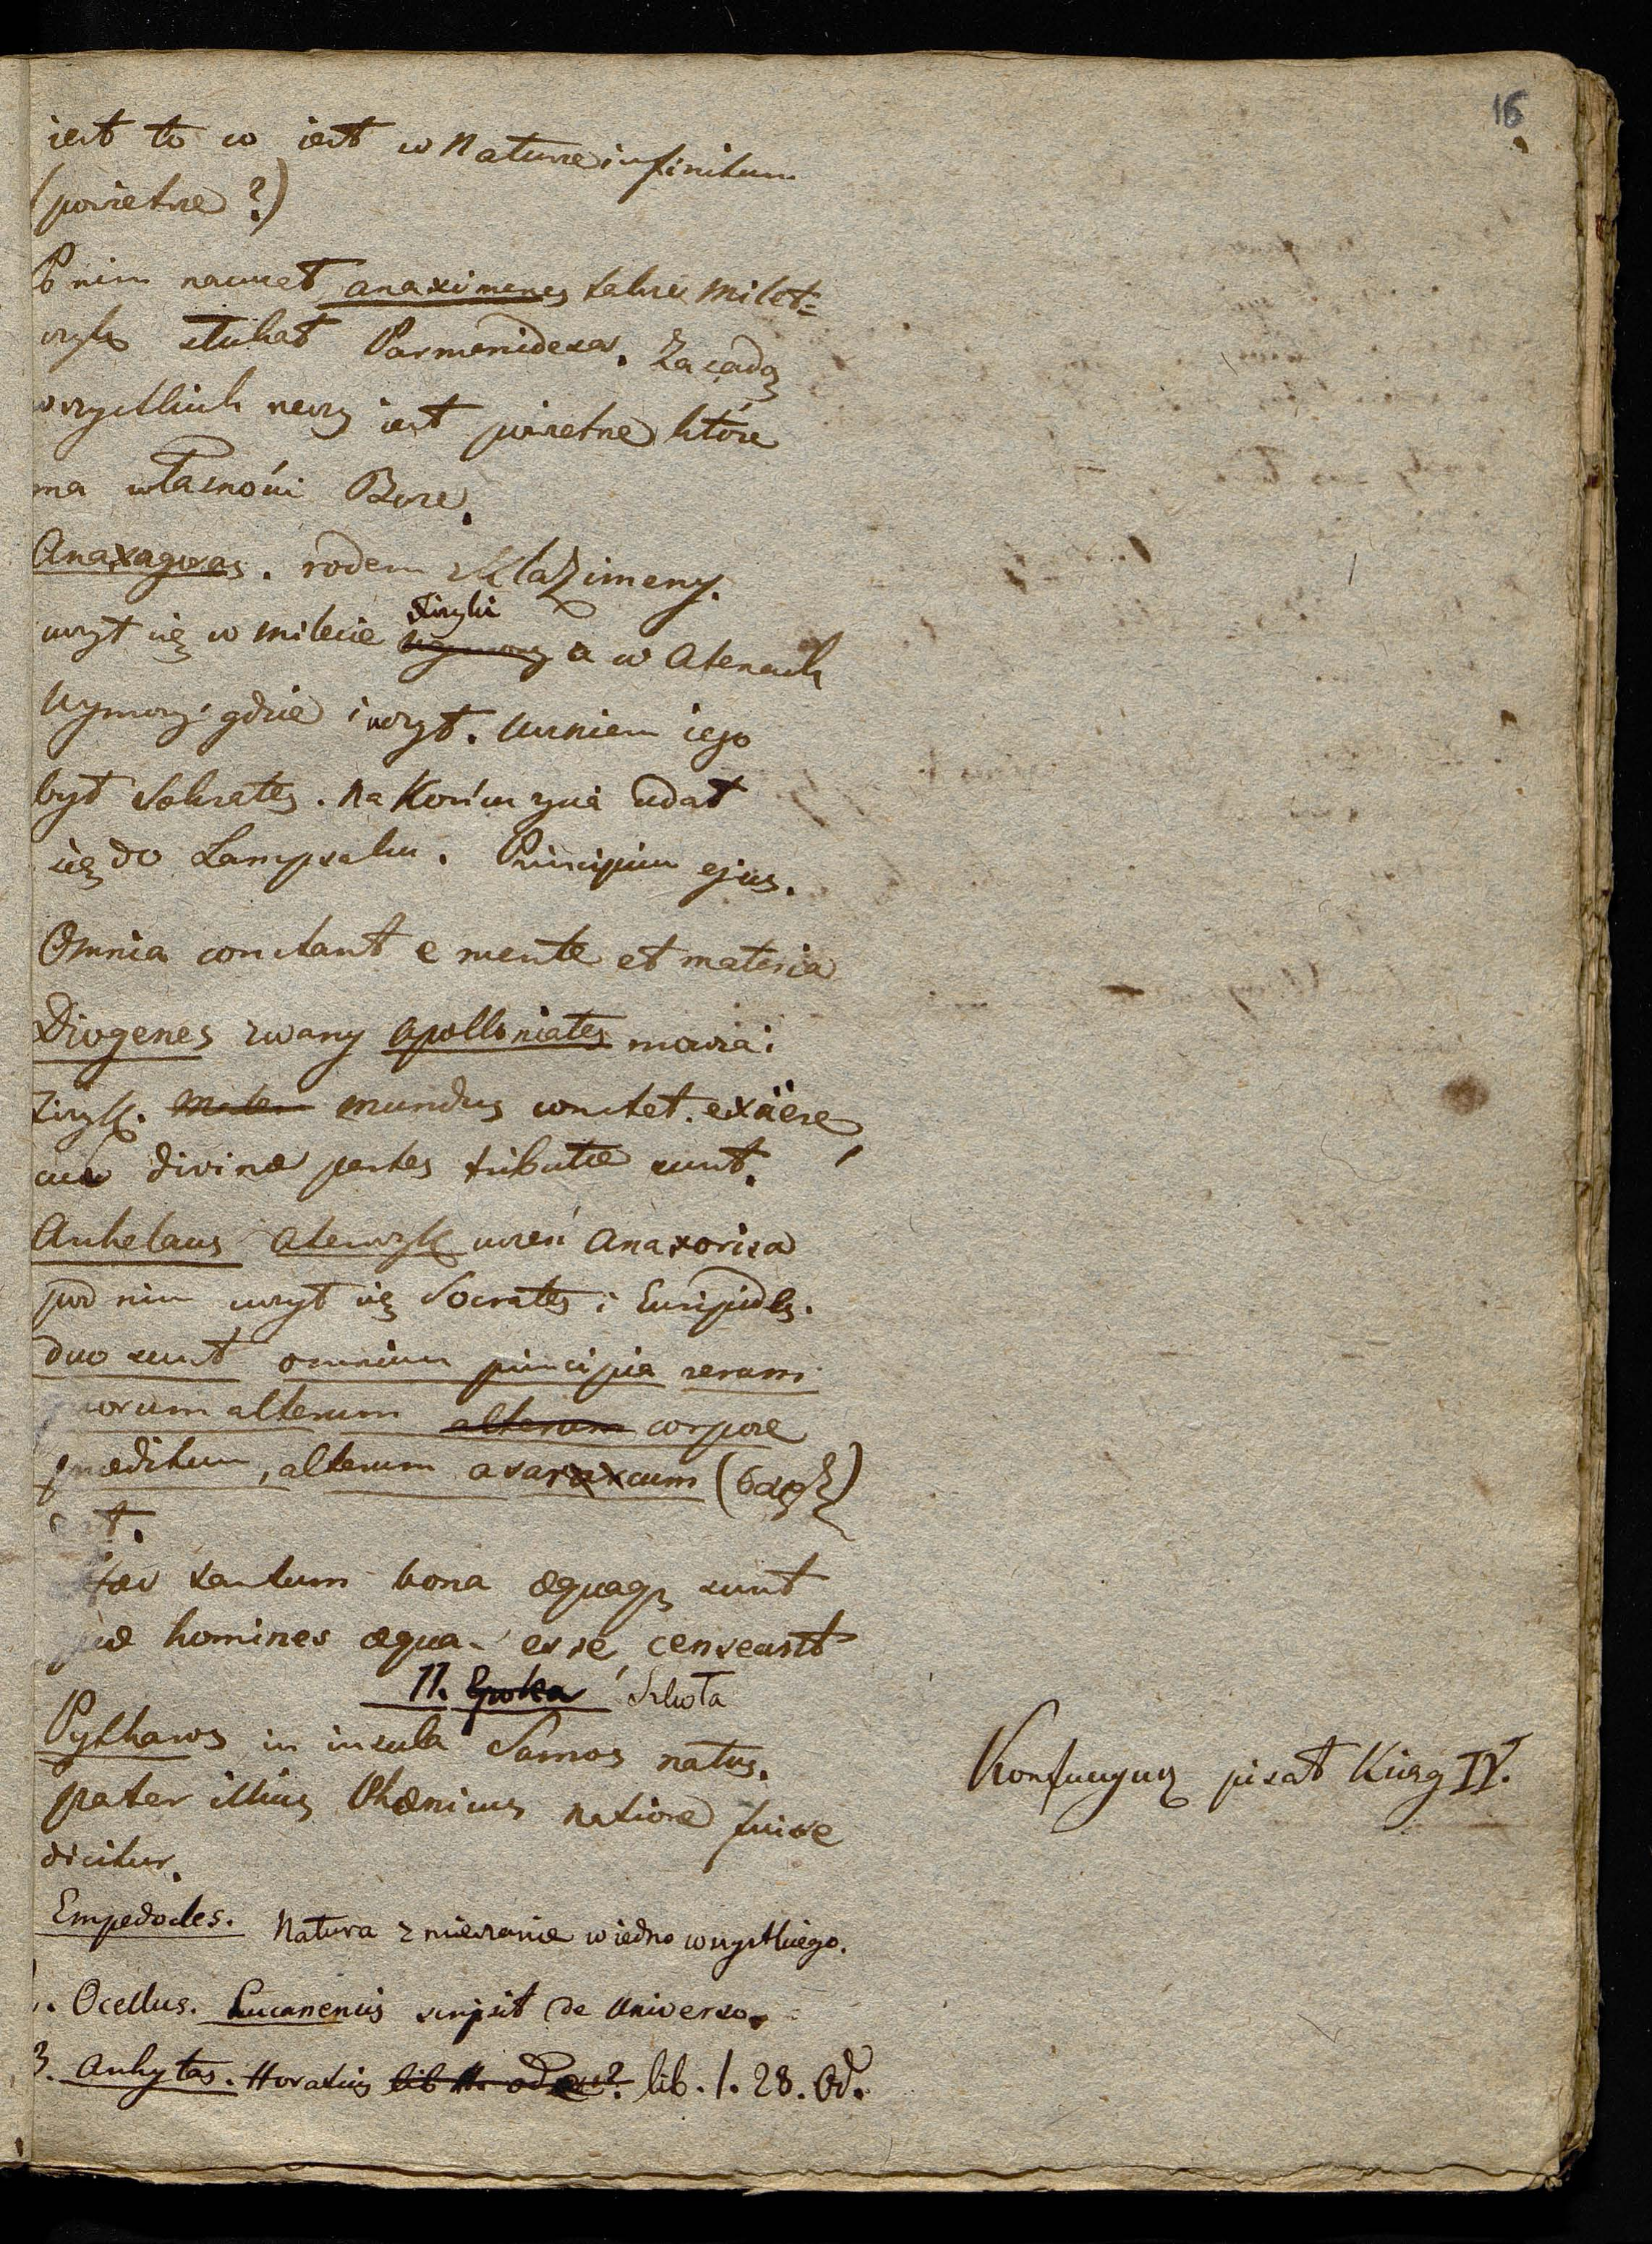 16
jest to co jest w Naturze infinitum
(powietrze ?)
Po nim nauczał Anaximenes także Milet=
czyk słuchał Parmenidesa. Zasadą
wszystkich rzeczy jest powietrze które
ma własności Boże.
Anaxagoras. rodem z Klazimeny.
uczył się w Milecie Fizyki a w Atenach
Wymowy. gdzie i uczył. Uczniem jego
był Sokrates. Na Końcu życia udał
się do Lampsaku. Principium ejus.
Omnia constant e mente et materia
Diogenes zwany Apolloniates mówca i
Fizyk. Mundus constet. ex äere,
cui divinæ partes tributæ sunt.
Archelaus Ateńczyk uczeń Anaxorisa
pod nim uczył się Socrates i Euripides.
duo sunt omnium principia rerum
quorum alterum alterum corpore
præditum, alterum asarcum (σαρξ)
est.
tantum bona æquaqz sunt
quæ homines æqua esse censeant
II. Epoka Szkoła
Pythagors in insula Samos natus.
pater illius Phœnicus natione fuisse
Konfucyusz pisał Kiąg IV.
dicitur.
Empedocles. Natura zmieszanie w jedno wszystkiego.
Ocellus. Lucanensis scripsit de Universo.
3. Archytas. Horatius lib. 1. 28. Od.